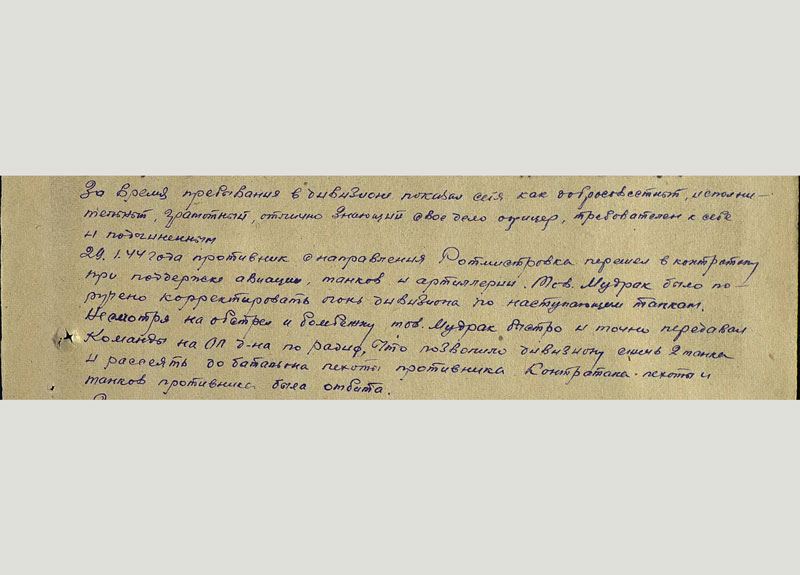 За время пребывания в дивизионе показал себя как добросовестный, исполни-
тельный, грамотный, отлично знающий свое дело офицер, требователен к себе
и подчиненным
29.1.44 года противник с направления Ротмистровка перешел в контратаку
при поддержке авиации, танков и артиллерии. Тов. Мудрак было по-
ручено корректировать огонь дивизиона по наступающим танкам.
Несмотря на обстрел и бомбежку тов. Мудрак быстро и точно передавал
команды на ОП д-на по радио, что позволило дивизиону сжечь 2 танка
и рассеять до батальона пехоты противника Контратака пехоты и
танков противника была отбита.